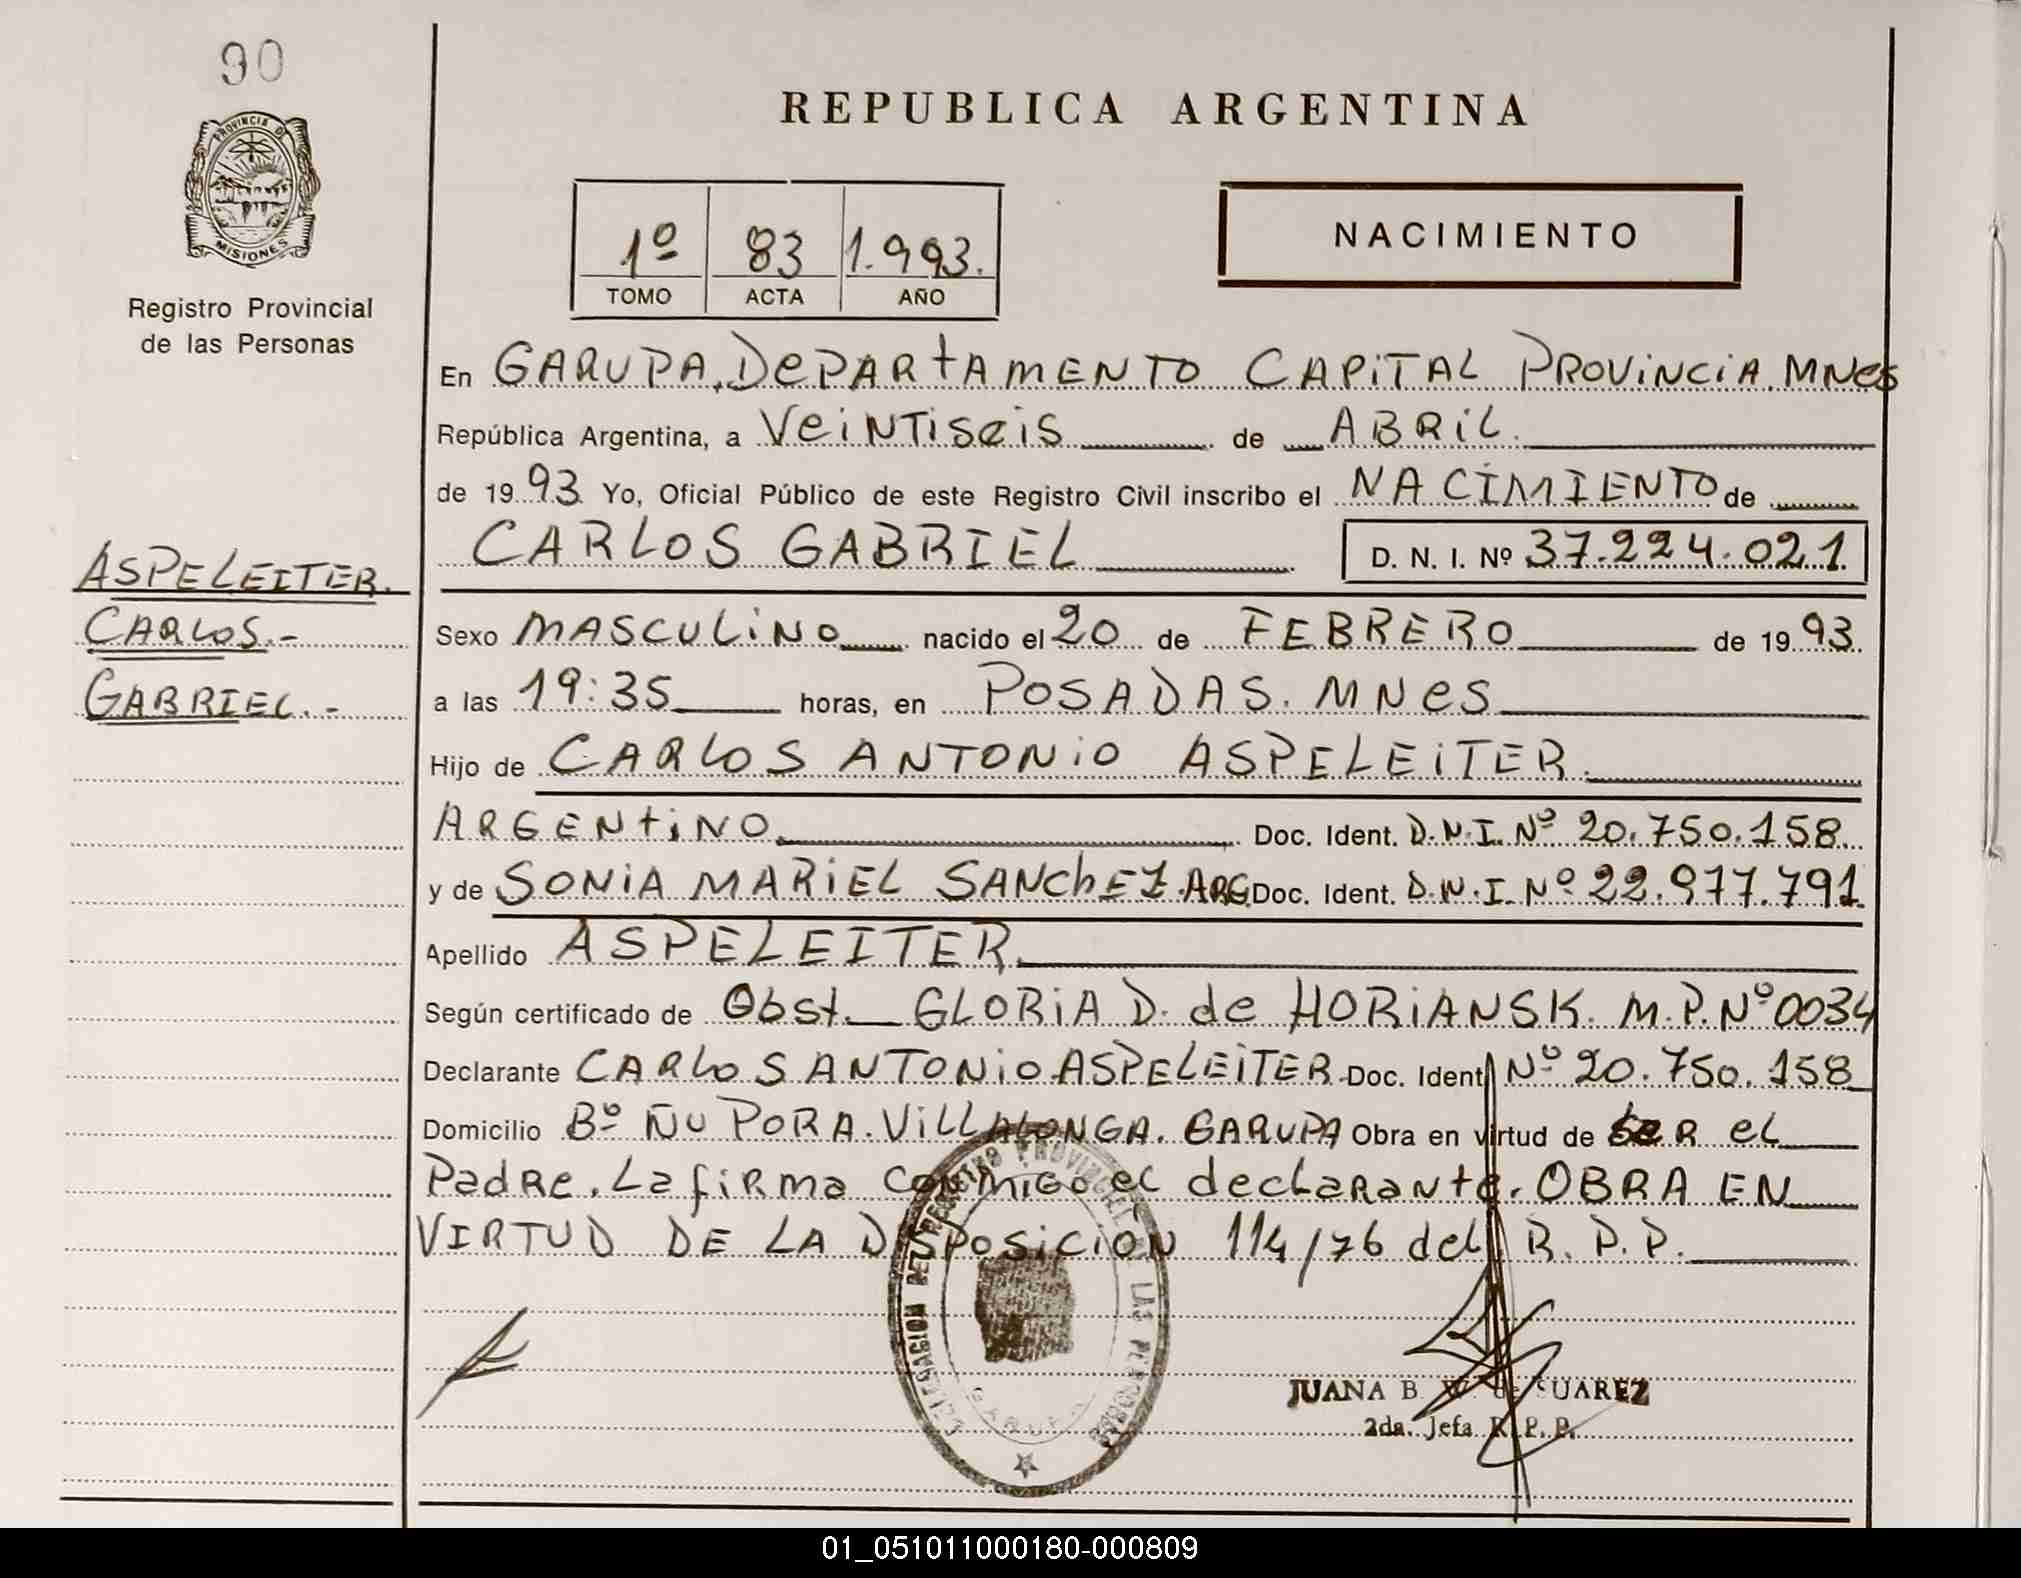 90
PROVINCIA DE
MISIONES
Registro Provincial
de las Personas
ASPELEITER.
CARLOS.-
GABRIEL.-
REPUBLICA ARGENTINA
1º 83 1.993.
TOMO ACTA AÑO
NACIMIENTO
En GARUPA, DePARtAMENTO CAPiTAL PROViNCiA. MNes
República Argentina, a VeiNTiseis de ABRiL.
de 1993 Yo, Oficial Público de este Registro Civil inscribo el NACIMIENTO de
CARLOS GABRIEL D. N. I. Nº 37.224.021
Sexo MASCULiNO nacido el 20 de FEBRERO de 1993.
a las 19:35 horas, en POSADAS. MNeS
Hijo de CARLOS ANTONiO ASPELEiTER.
ARGENtiNO. Doc. Ident. D.N.I. Nº 20.750.158
y de SONiA MARiEL SANChEZ. ARG. Doc. Ident. D.N.I. Nº 22.977.791
Apellido ASPELEITER.
Según certificado de Obst. GLORiA D. de HORiANSK. M.P. Nº 0034
Declarante CARLOS ANTONiO ASPELEiTER. Doc. Ident. Nº 20.750.158
Domicilio Bº ÑU PORA. ViLLALONGA. GARUPA Obra en virtud de seR eL
PadRe. La fiRma conmigo eL decLaRante. OBRA EN
VIRTUD DE LA DISPOSICION 114/76 del R.P.P.
DELEGACION DEL REGISTRO PROVINCIAL DE LAS PERSONAS
GARUPA
JUANA B. de SUAREZ
2da. Jefa R.P.P.
01_051011000180-000809